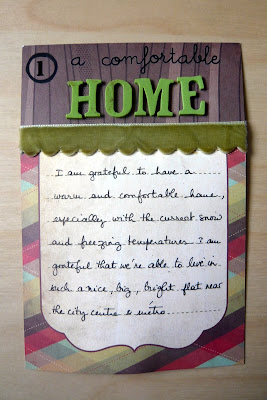 1
a comfortable
HOME
I am grateful to have a......
warm and comfortable home,
especially with the current snow
and freezing temperatures. I am
grateful that we're able to live in
such a nice, big, bright flat near
the city centre & métro..........